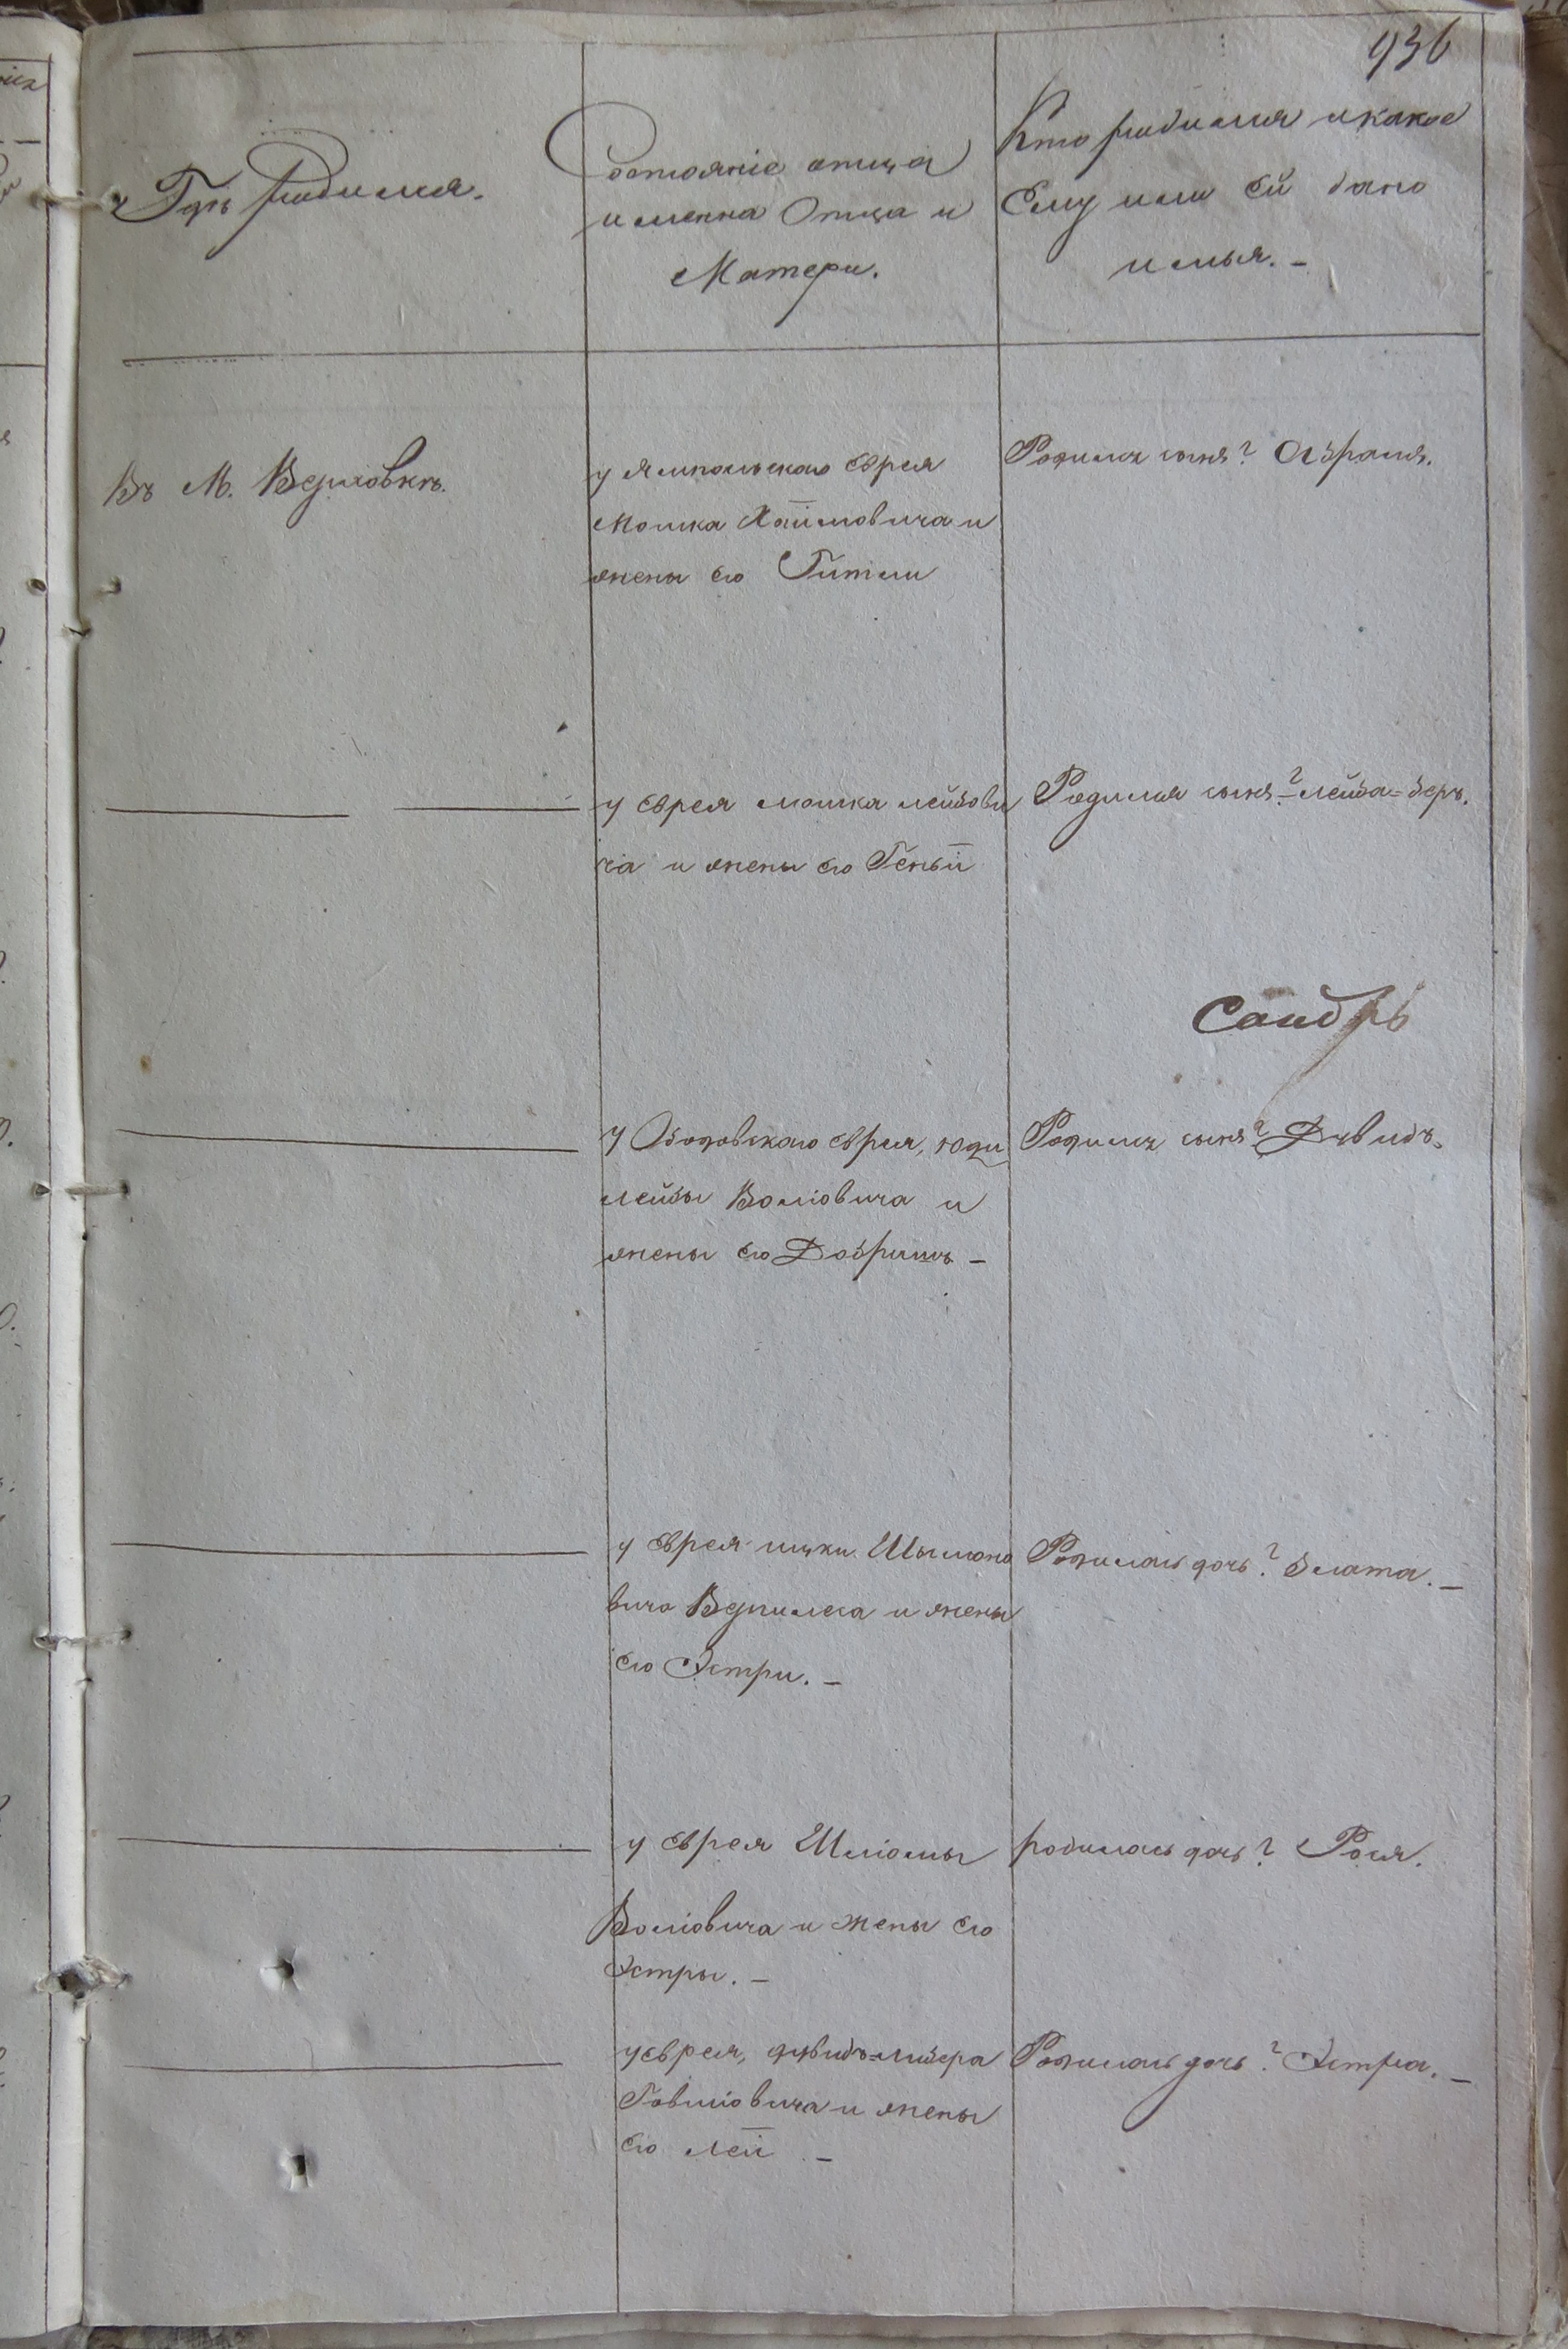 936
Гдѣ родился.
Состояніе отца
и имена Отца и
Матери.
Кто родился и какое
Ему или Ей дано
имья. –
Въ М. Верховкѣ.
у Ямпольскаго Еврея
Мошка Хаимовича и
жены его Гитли
Родился сынъ? Абрамъ.
у Еврея мошка лейбови
ча и жены его Геньи
Родился сынъ? – лейба=беръ.
у Ободовскаго Еврея, юди
лейбы Волiовича и
жены его Добришъ –
Родился сынъ? Дувидъ.
у Еврея ицки Шымоно
вича и жены
его Эстри. –
Родилась дочь? Злата. –
у Еврея Шліомы
Воліовича и жены его
Эстры. –
родилась дочь? Рося.
у еврея, дувидъ=лизера
Говшіовича и жены
его леи –
Родилась дочь? Эстра. –